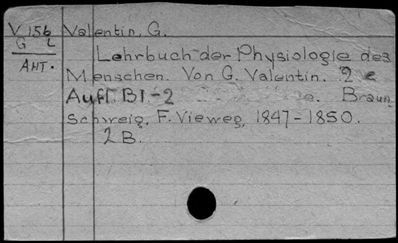 V 156 Valentin, G.
G L
ANT. Lehrbuch der Physiologie des
Menschen. Von G. Valentin. 2 e
Aufl. B1-2 Braun
schweig, F. Vieweg, 1847-1850.
2 B.